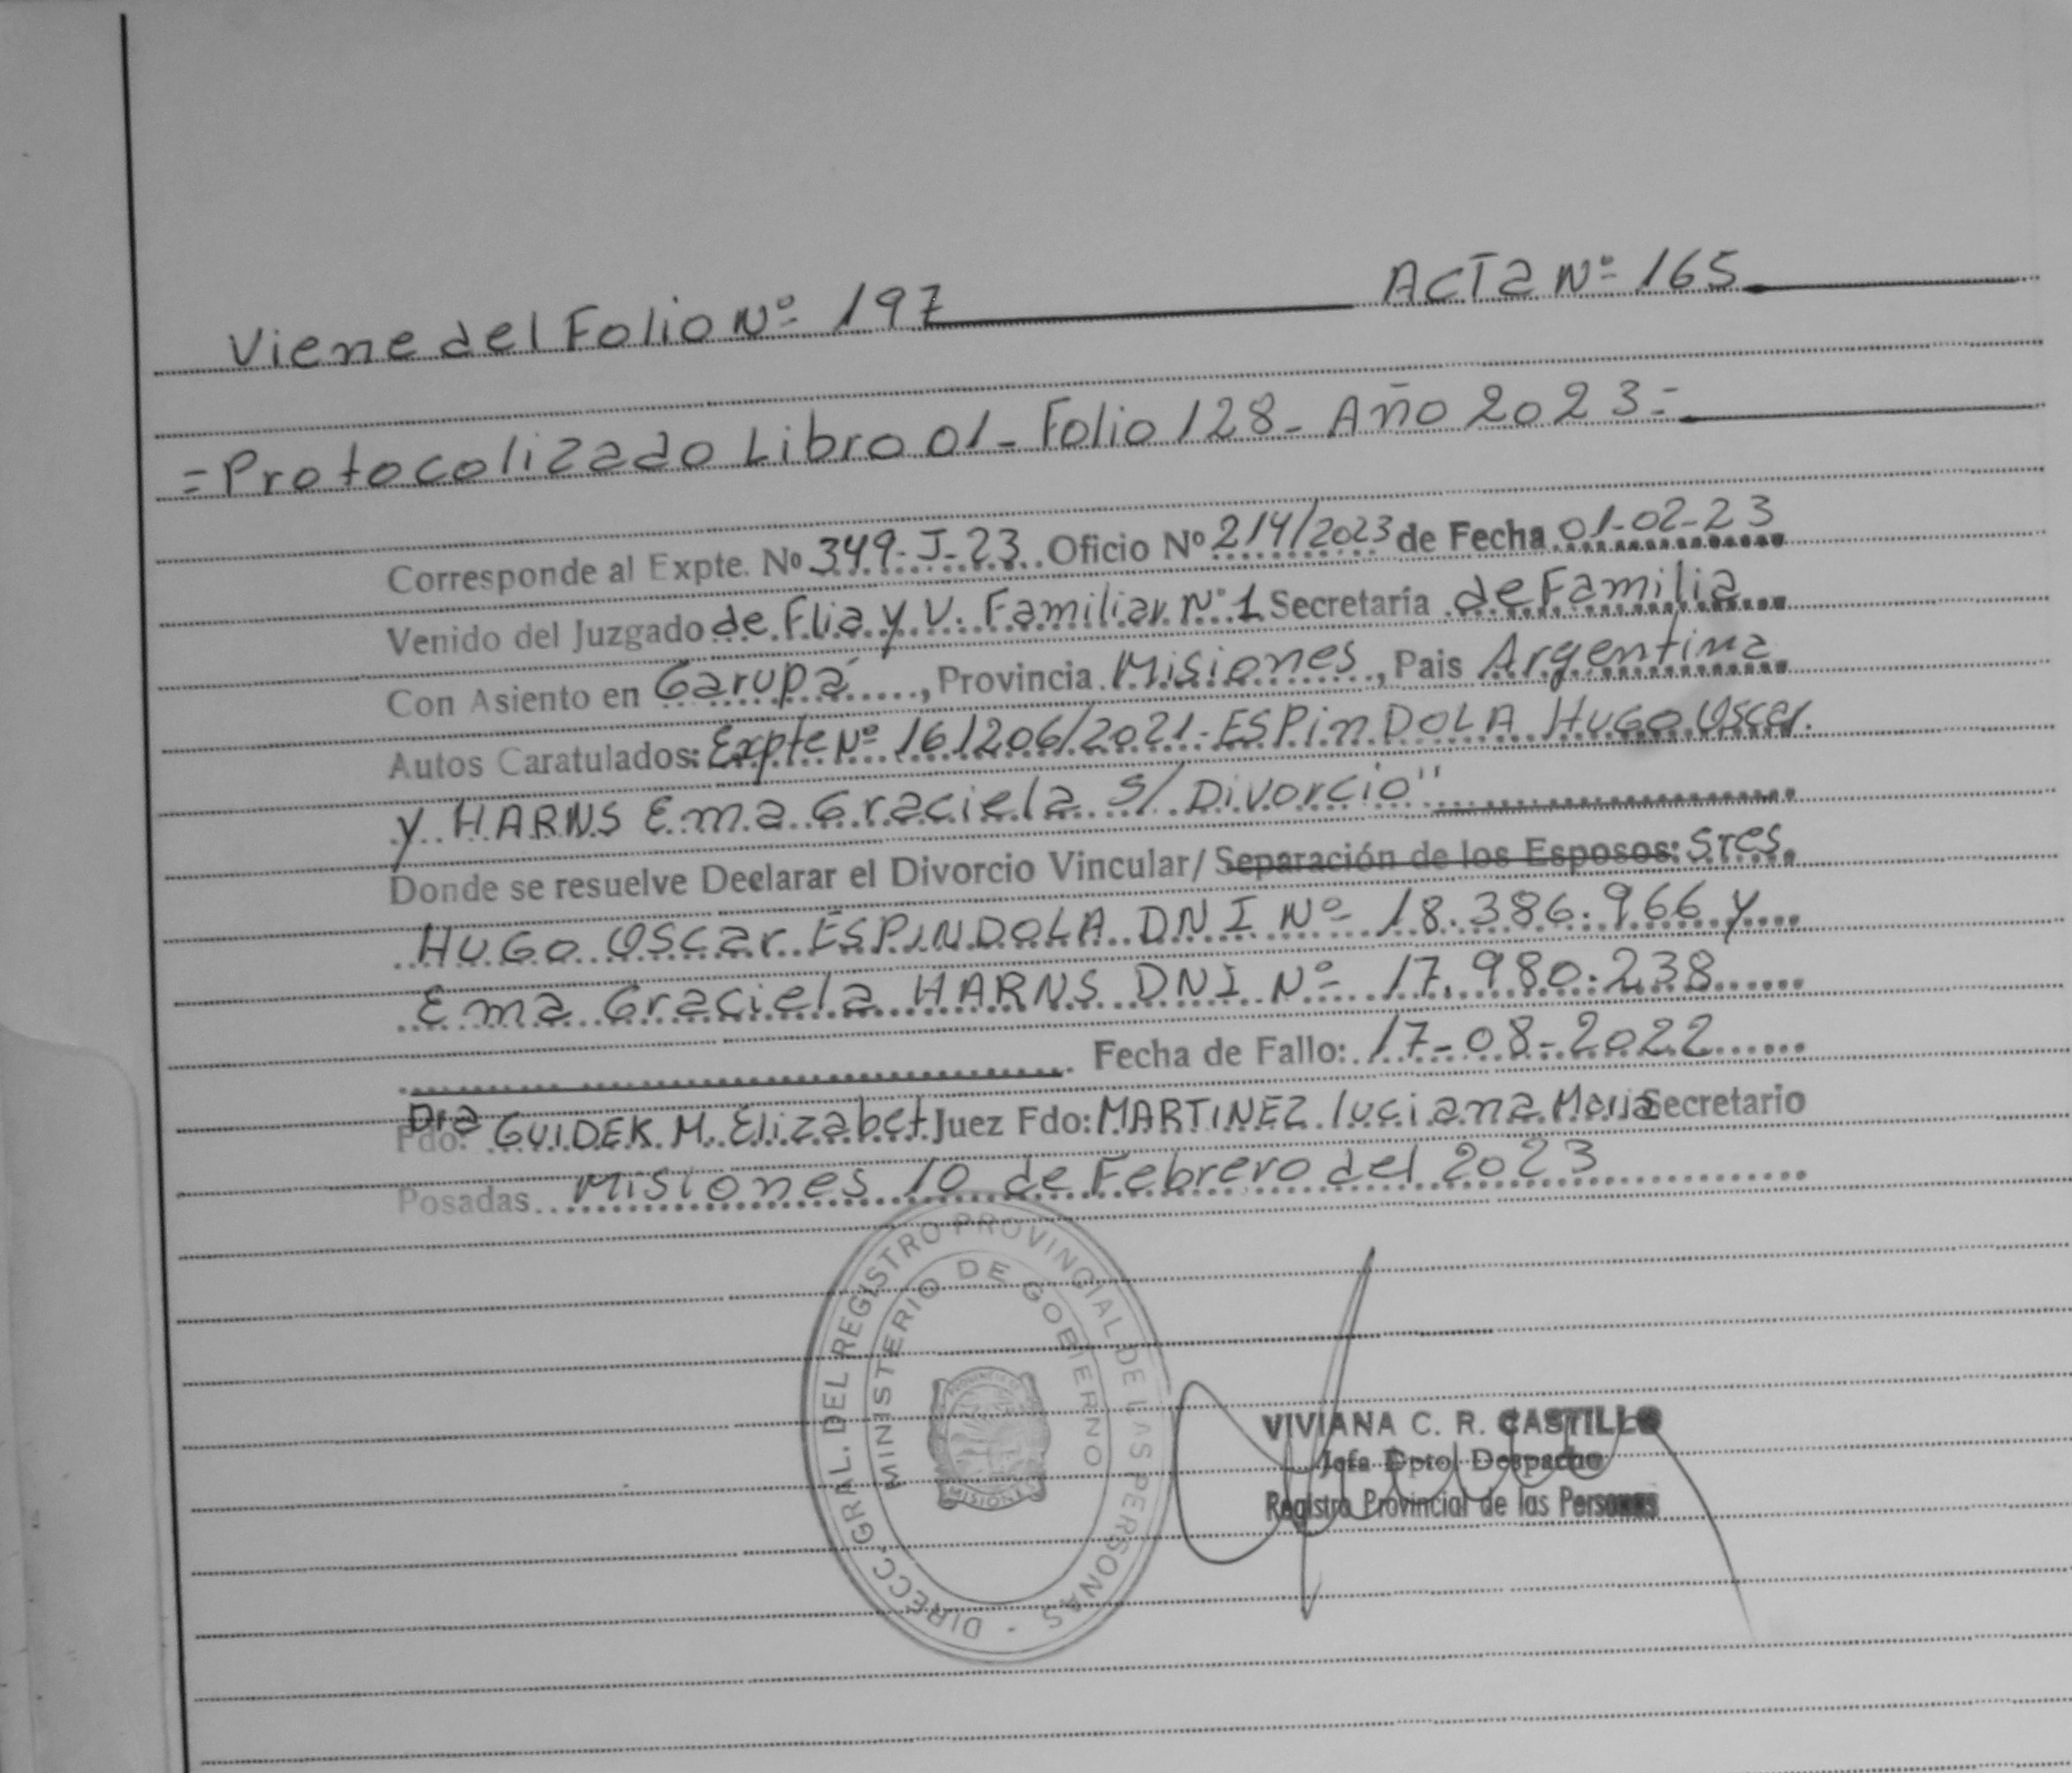 Viene del Folio Nº 197 ACTA Nº 165
= Protocolizado Libro 01 - Folio 128 - Año 2023 =
Corresponde al Expte. Nº 349-J-23 Oficio Nº 214/2023 de Fecha 01-02-23
Venido del Juzgado de Flia y V. Familiar Nº 1 Secretaría de Familia
Con Asiento en Garupá, Provincia Misiones, Pais Argentina
Autos Caratulados: Expte Nº 161206/2021 - ESPINDOLA Hugo Oscar
y HARNS Ema Graciela S/ Divorcio"
Donde se resuelve Declarar el Divorcio Vincular/ Separación de los Esposos: Sres.
HUGO Oscar ESPINDOLA DNI Nº 18.386.966 y
Ema Graciela HARNS DNI Nº 17.980.238
Fecha de Fallo: 17-08-2022
Fdo: Dra GUIDEK M. Elizabet Juez Fdo: MARTINEZ Luciana Maria Secretario
Posadas Misiones 10 de Febrero del 2023
DIRECC. GRAL. DEL REGISTRO PROVINCIAL DE LAS PERSONAS -
MINISTERIO DE GOBIERNO
PROVINCIA DE
MISIONES
VIVIANA C. R. CASTILLO
Jefa Dpto. Despacho
Registro Provincial de las Personas